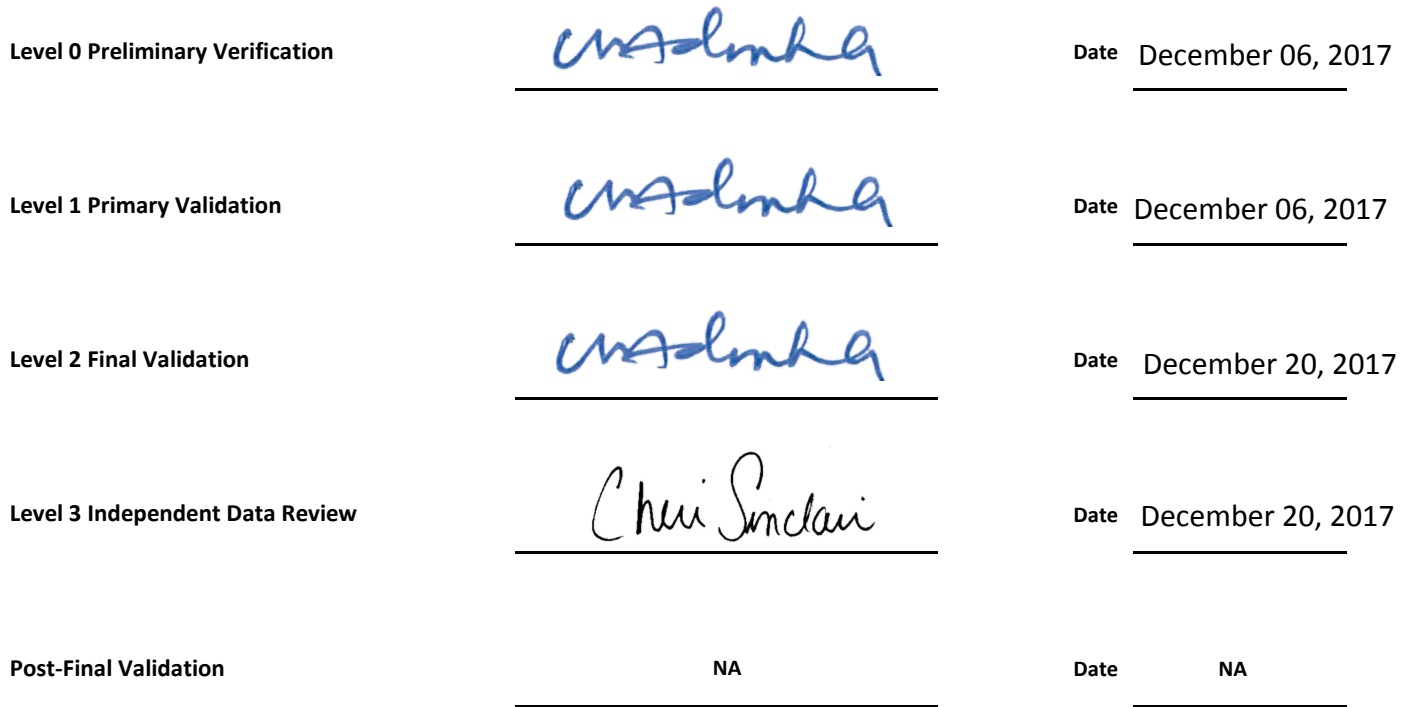 Level 0 Preliminary Verification Date December 06, 2017
Level 1 Primary Validation Date December 06, 2017
Level 2 Final Validation Date December 20, 2017
Level 3 Independent Data Review Cheri Sinclair Date December 20, 2017
Post-Final Validation NA Date NA